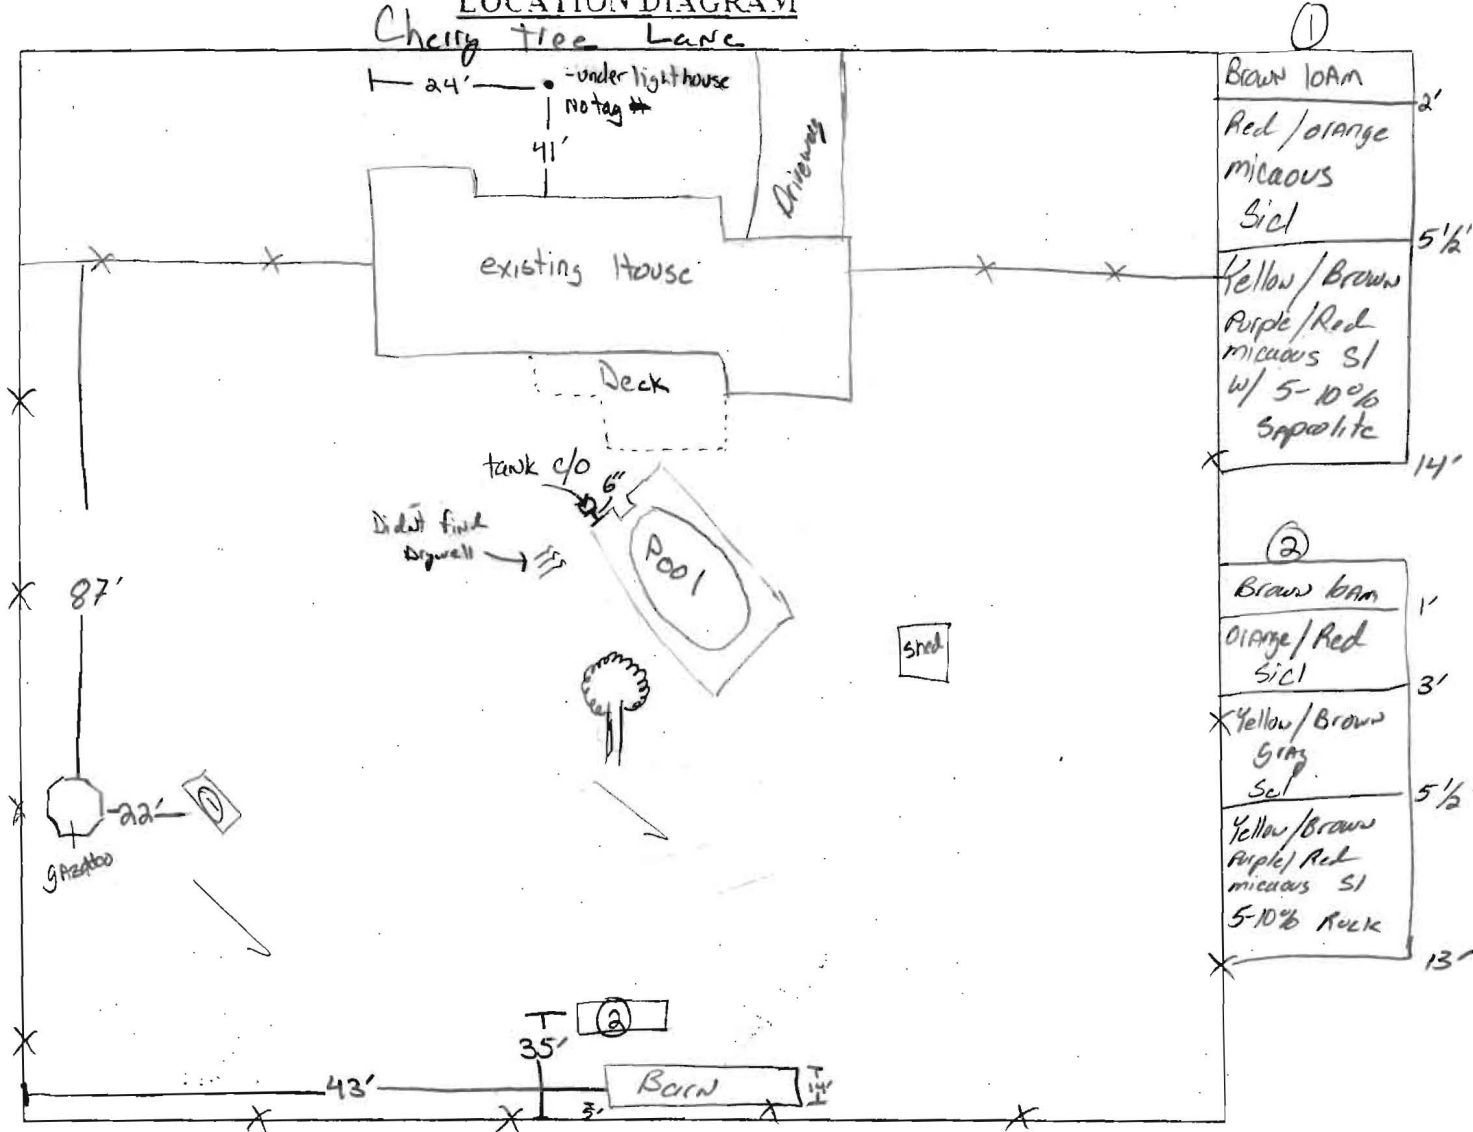 LOCATION DIAGRAM
Cherry Tree Lane
24'
-under lighthouse
No tag #
41'
Driveway
existing House
Deck
tank c/o
6"
Didnt find
Drywell
Pool
shed
87'
22'
①
gazeboo
②
35'
43'
Barn
14'
5'
①
Brown loAm
2'
Red / orange
micaous
Sicl
5 1/2'
Yellow / Brown
Purple / Red
micaous Sl
w/ 5-10%
Sapeolite
14'
②
Brown loAm
1'
Orange / Red
Sicl
3'
Yellow / Brown
Gray
Scl
5 1/2
Yellow / Brown
Purple / Red
micaous Sl
5-10% Rock
13'